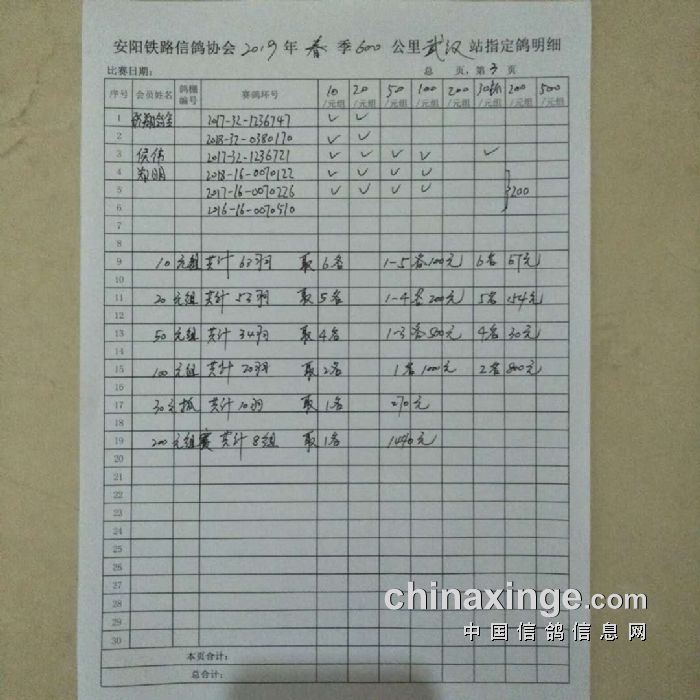 安阳铁路信鸽协会 2019 年 春 季 600 公里 武汉 站指定鸽明细
比赛日期： 总 页，第 3 页
序号 会员姓名 鸽棚编号 赛鸽环号 10/元组 20/元组 50/元组 100/元组 200/元组 30抓/元组 200/元组 500/元组
1 2017-32-1236747 ✓ ✓
2 2018-32-0380170 ✓ ✓
3 侯伟 2017-32-1236721 ✓ ✓ ✓ ✓ ✓
4 郑明 2018-16-0070122 ✓ ✓ ✓ ✓
5 2017-16-0070226 ✓ ✓ ✓ ✓ }200
6 2016-16-0070510
7
8
9 10元组 共计 63羽 取6名 1-5名100元 6名 67元
10
11 20元组 共计 53羽 取5名 1-4名200元 5名 154元
12
13 50元组 共计 34羽 取4名 1-3名500元 4名 30元
14
15 100元组 共计 20羽 取2名 1名 1000元 2名 800元
16
17 30元抓 共计 10羽 取1名 270元
18
19 200元组赛 共计 8组 取1名 1440元
20
21
22
23
24
25
26
27
28
29
30
本页合计：
总合计：
chinaxinge.com
中国信鸽信息网